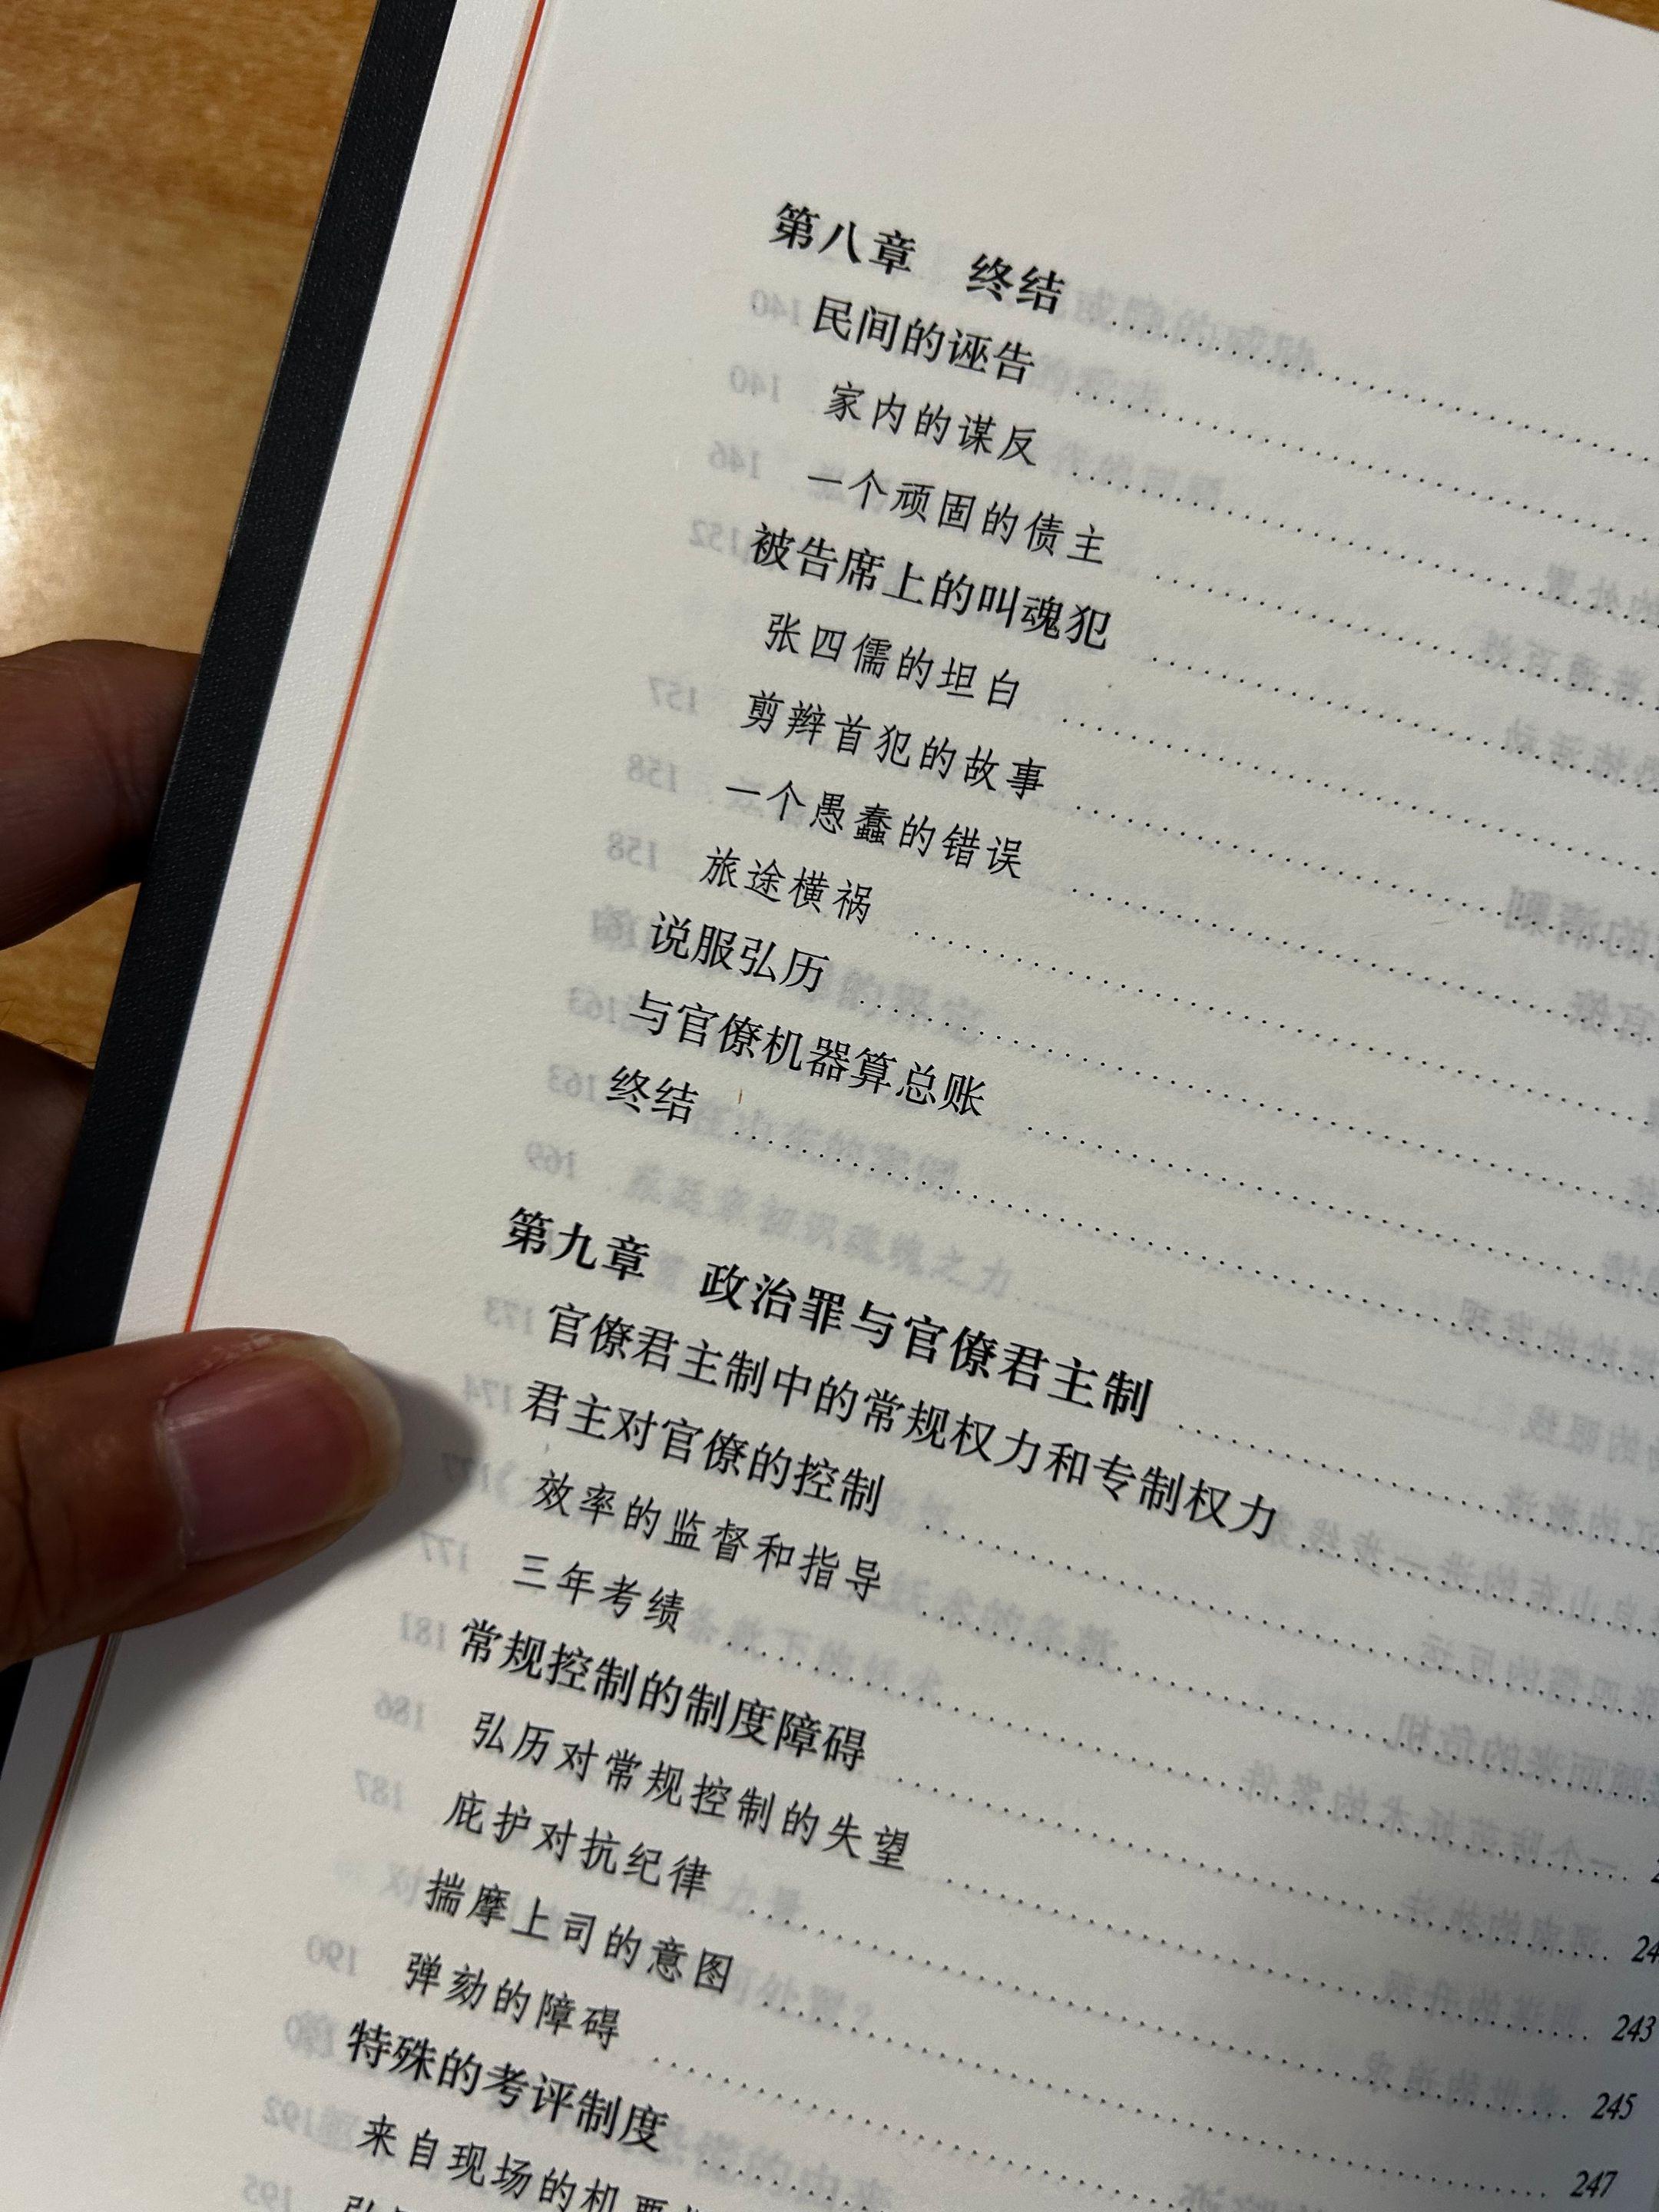 第八章 终结
民间的诬告
家内的谋反
一个顽固的债主
被告席上的叫魂犯
张四儒的坦白
剪辫首犯的故事
一个愚蠢的错误
旅途横祸
说服弘历
与官僚机器算总账
终结
第九章 政治罪与官僚君主制
官僚君主制中的常规权力和专制权力
君主对官僚的控制
效率的监督和指导
三年考绩
常规控制的制度障碍
弘历对常规控制的失望
庇护对抗纪律 243
揣摩上司的意图 245
弹劾的障碍 247
特殊的考评制度
来自现场的机要